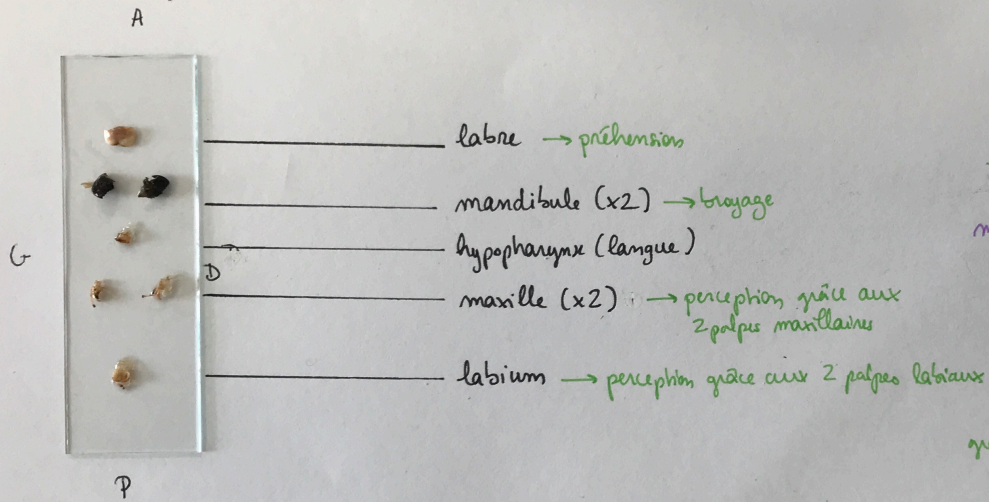 A
labre → préhension
mandibule (x2) → broyage
hypopharynx (langue)
G
D
maxille (x2) → perception grâce aux
2 palpes maxillaires
labium → perception grâce aux 2 palpes labiaux
P